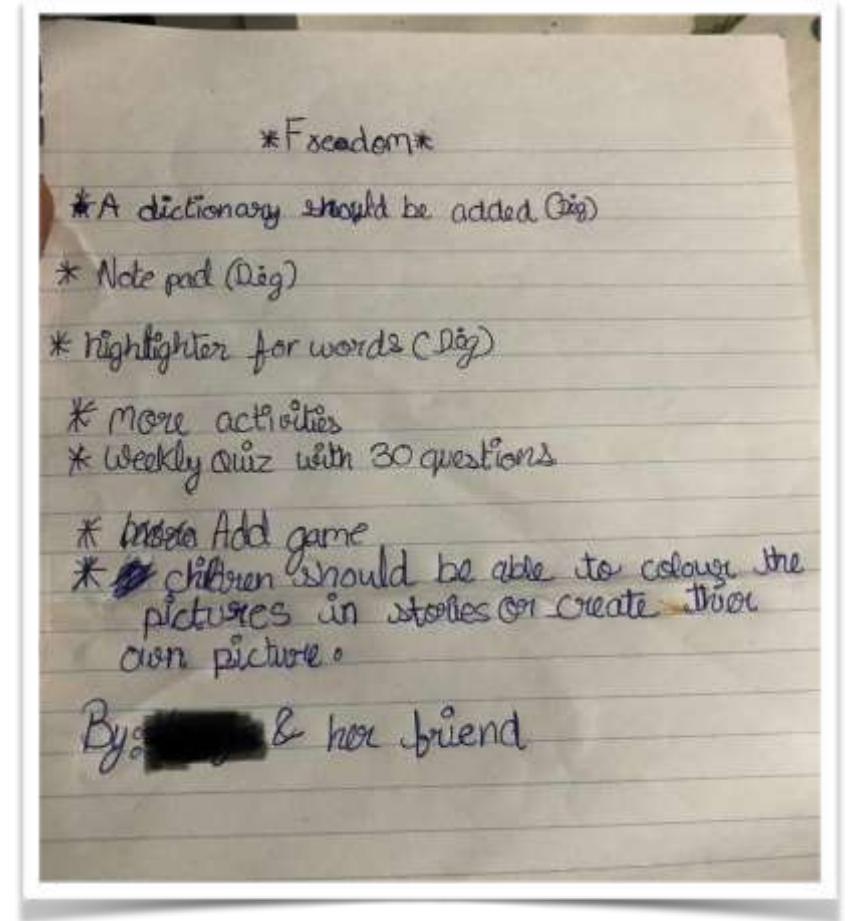 *Freedom*
*A dictionary should be added (Dig)
* Note pad (Dig)
* highlighter for words (Dig)
* More activities
* Weekly Quiz with 30 questions
* Add game
* children should be able to colour the
pictures in stories or create thier
own picture.
By: & her friend